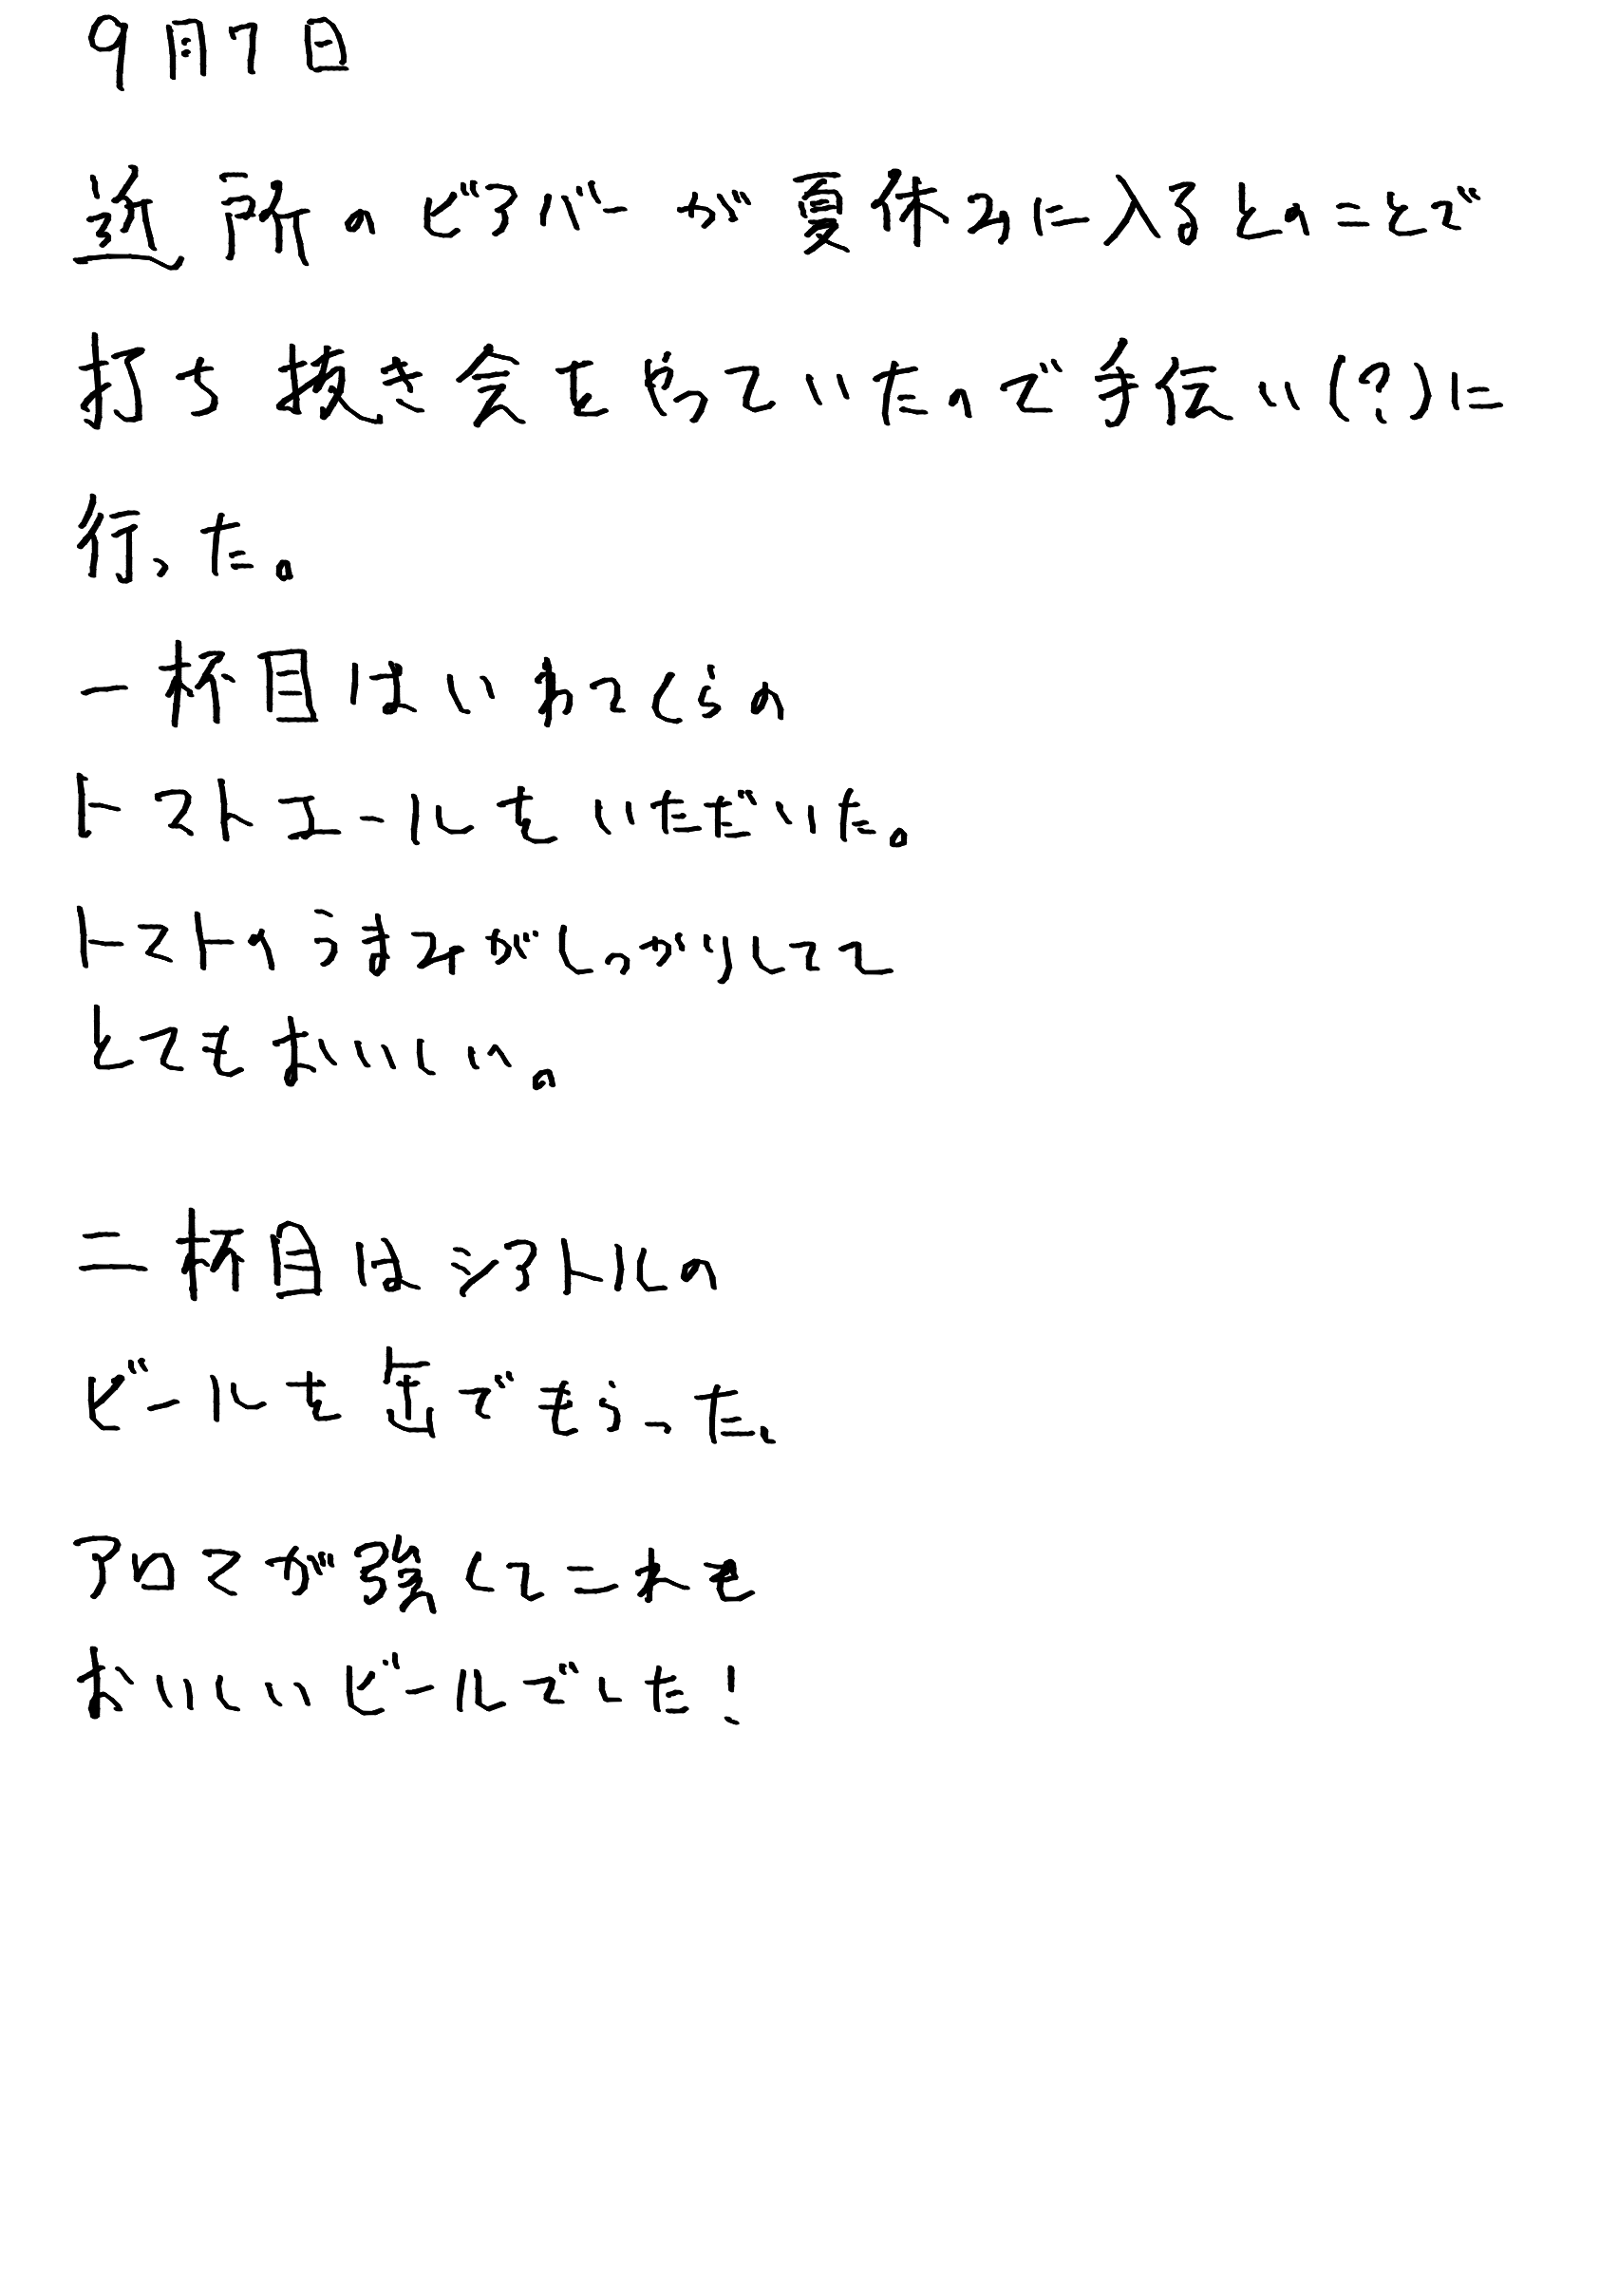 9月7日
近所のビアバーが夏休みに入るとのことで
打ち抜き会をやっていたので手伝い(?)に
行った。
一杯目はいわてくらの
トマトエールをいただいた。
トマトのうまみがしっかりしてて
とてもおいしい。
二杯目はシアトルの
ビールを缶でもらった、
アロマが強くてこれも
おいしいビールでした!